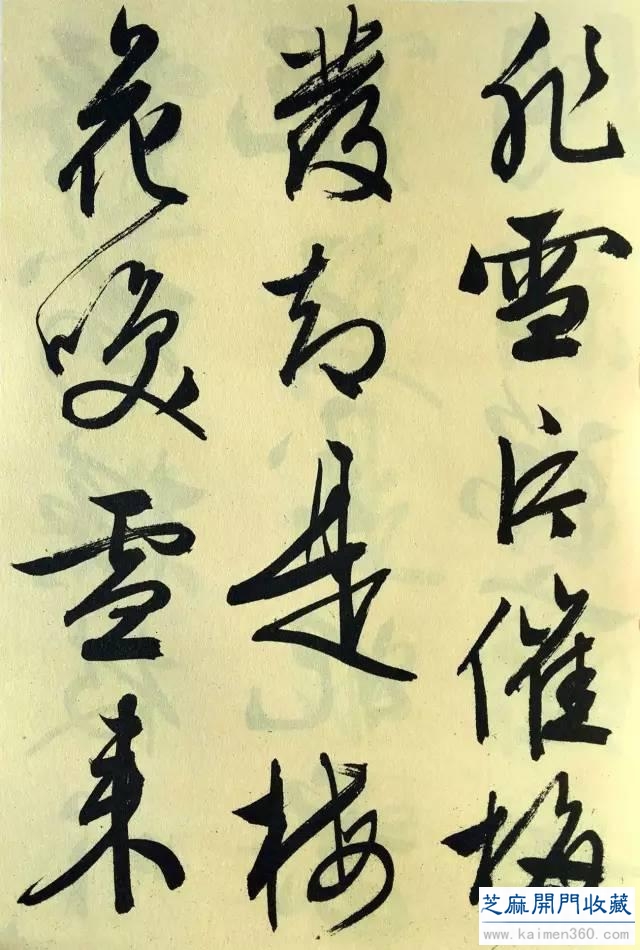 非雪片催梅
發却是梅
花喚雪來
芝麻開門收藏
www.kaimen360.com